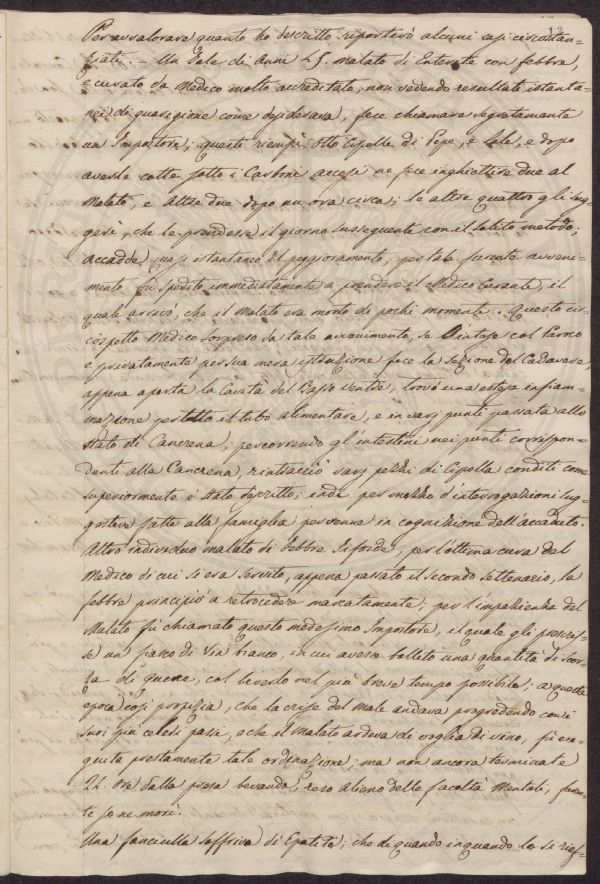 12
Per avvalorare quanto ho descritto riporterò alcuni casi circostan-
ziati. - Un Tale di Anni 45. malato di Enterite con febbre,
e curato da Medico molto accreditato, non vedendo resultati istanta-
nei di guarigione come desiderava, fece chiamare segretamente
un Impostore; questi riempì otto Cipolle di Pepe, e Sale, e dopo
averle cotte sotto i Carboni accesi ne fece inghiottire due al
Malato, e Altre due dopo un'ora circa; le altre quattro gli sug-
gerì, che le prendesse il giorno susseguente con il solito metodo;
accadde quasi istantaneo il peggioramento; per tale avveni-
mento fu spedito immediatamente a prendere il Medico Curante, il
quale arrivò, che il Malato era morto di pochi momenti. Questo cir-
cospetto Medico sorpreso da tale avvenimento, se l'intese col Parroco
e privatamente per sua mera istruzione fece la Sezione del Cadavere,
appena aperta la Cavità del Basso Ventre, trovò una estesa infiam-
mazione per tutto il tubo alimentare, e in varj punti passata allo
stato di Cancrena; percorrendo gl'intestini nei punti corrispon-
denti alla Cancrena, rintracciò varj pezzi di Cipolla conditi come
superiormente è stato descritto; indi per mezzo d'interrogazioni sug-
gestive fatte alla famiglia pervenne in cognizione dell'accaduto.
Altro individuo malato di febbre Tifoide, per l'ottima cura del
Medico di cui si era servito, appena passato il secondo settenario, la
febbre principiò a retrocedere marcatamente; per l'impazienza del
Malato fu chiamato questo medesimo Impostore, il quale gli prescris-
se un fiasco di Vin bianco, in cui aveva bollito una quantità di scor-
za di, col beverlo nel più breve tempo possibile; a questa
epoca così propizia, che la crise del male andava progredendo con i
suoi più celeri passi, e che il Malato ardeva di voglia di vino, fu ese-
guita prestamente tale ordinazione; ma non ancora terminate
22. ore dalla presa bevanda, reso alieno delle facoltà Mentali,
te se ne morì.
Una fanciulla soffriva di Epatite; che di quando in quando le si riaf-